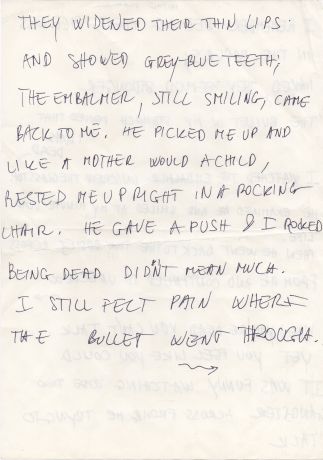 THEY WIDENED THEIR THIN LIPS
AND SHOWED GREY-BLUE TEETH;
THE EMBALMER, STILL SMILING, CAME
BACK TO ME. HE PICKED ME UP AND
LIKE A MOTHER WOULD A CHILD,
RESTED ME UPRIGHT IN A ROCKING
CHAIR. HE GAVE A PUSH & I ROCKED
BEING DEAD DIDN'T MEAN MUCH.
I STILL FELT PAIN WHERE
THE BULLET WENT THROUGH.